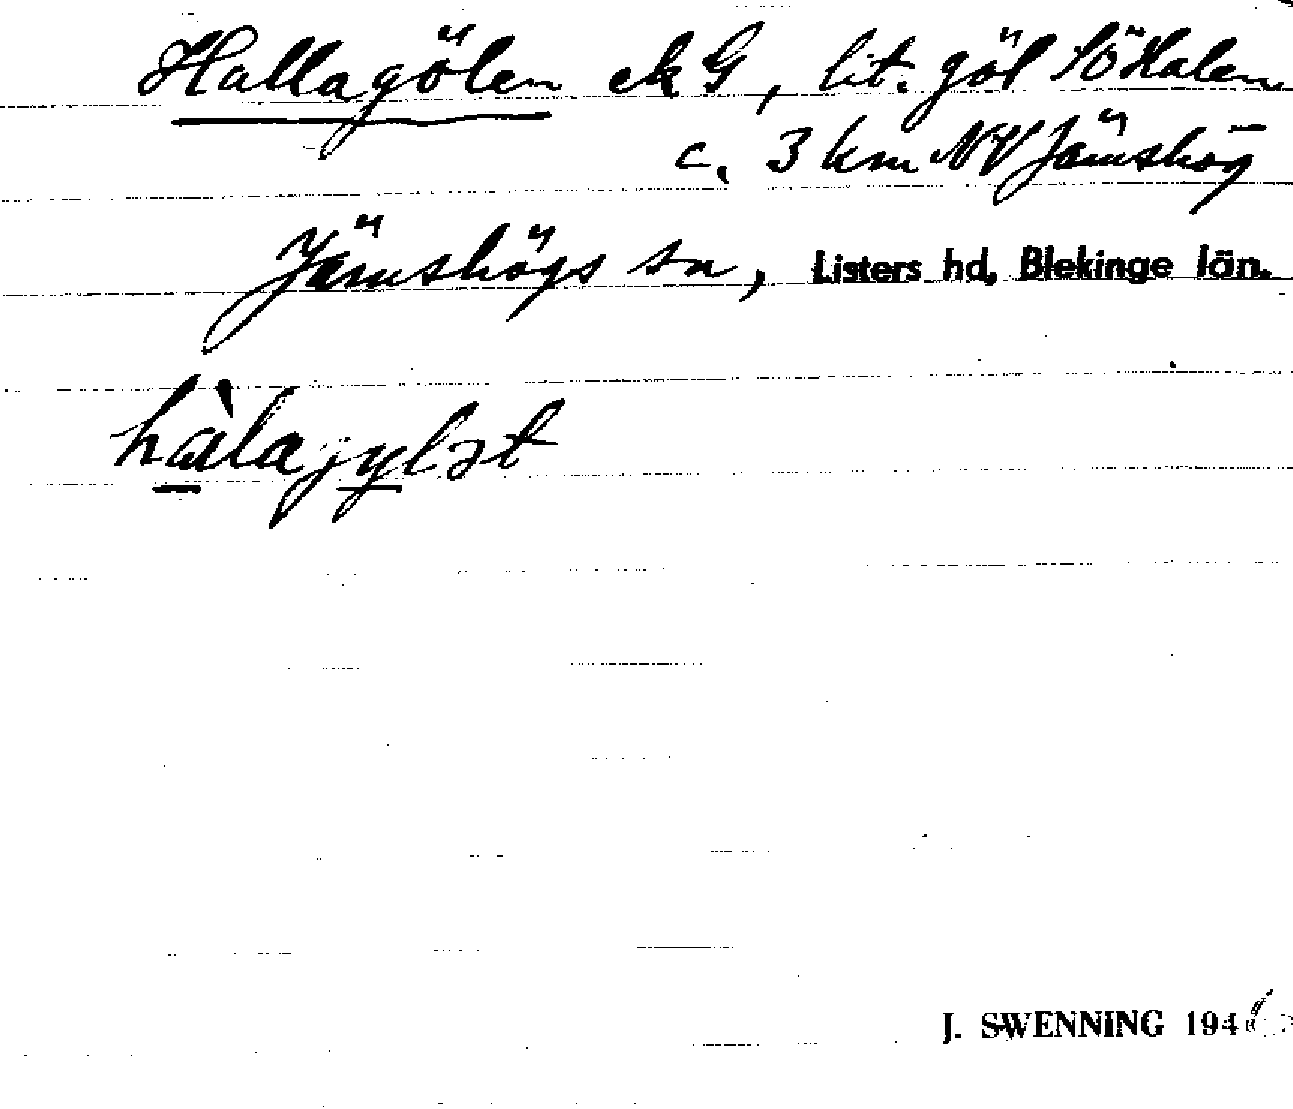 Hallagölen ek G, lit. göl SÖ Halen
c. 3 km NV Jämshög
Jämshögs sn, Listers hd, Blekinge län.
hàlajylət
J. SWENNING 194